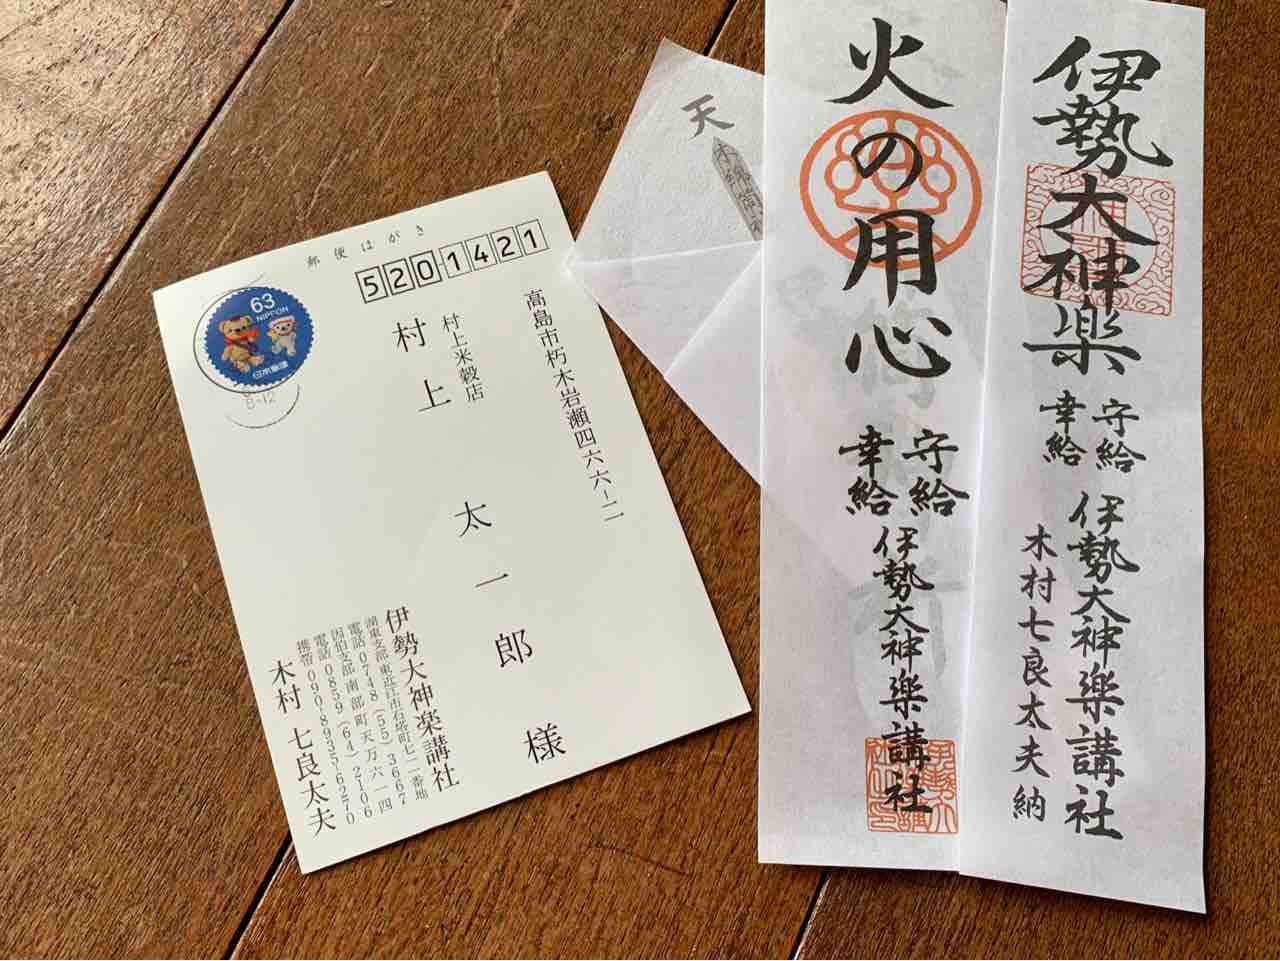 郵便はがき
5201421
63
NIPPON
日本郵便
8-12
高島市朽木岩瀬四六六-二
村上米穀店
村上 太一郎 様
伊勢大神楽講社
湖東支部 東近江市石塔町七一番地
電話0748(55)3667
因伯支部 南部町天万六一四
電話0859(64)2106
携帯090-8935-6270
木村 七良太夫
天
火の用心
守給
幸給
伊勢大神楽講社
伊勢大神楽
守給
幸給
伊勢大神楽講社
木村七良太夫納